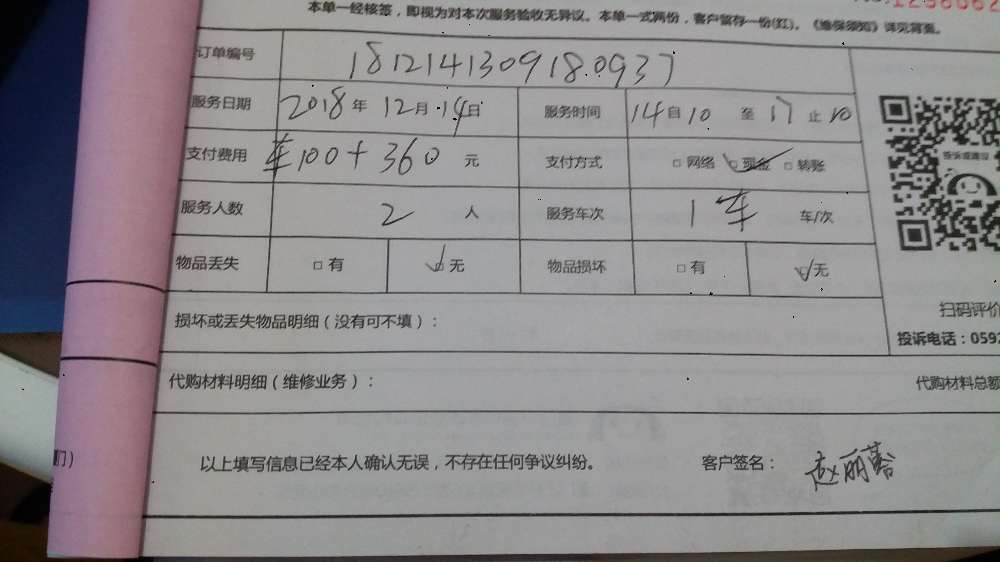 本单一经核签，即视为对本次服务验收无异议。本单一式两份，客户留存一份(红)。《维保须知》详见背面。
订单编号 1812141309180937
服务日期 2018年12月14日 服务时间 14自10至17止10
支付费用 车100+360元 支付方式 □网络 ☑现金 □转账
投诉或建议
服务人数 2人 服务车次 1车 车/次
物品丢失 □有 ☑无 物品损坏 □有 ☑无
扫码评价
损坏或丢失物品明细（没有可不填）：
投诉电话：0592
代购材料明细（维修业务）： 代购材料总额
门）
以上填写信息已经本人确认无误，不存在任何争议纠纷。 客户签名：赵丽蓉